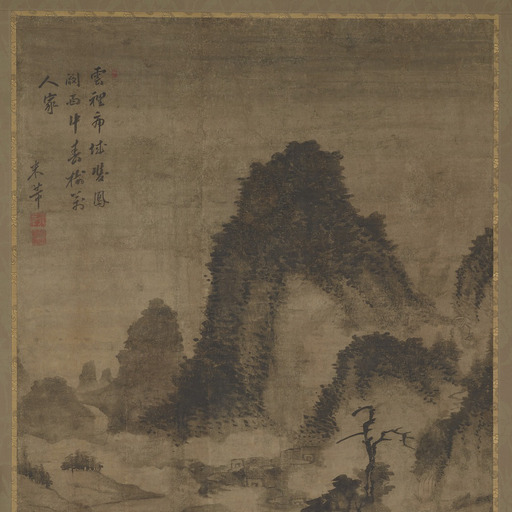 雲裡帝城雙鳳
闕雨中春樹萬
人家